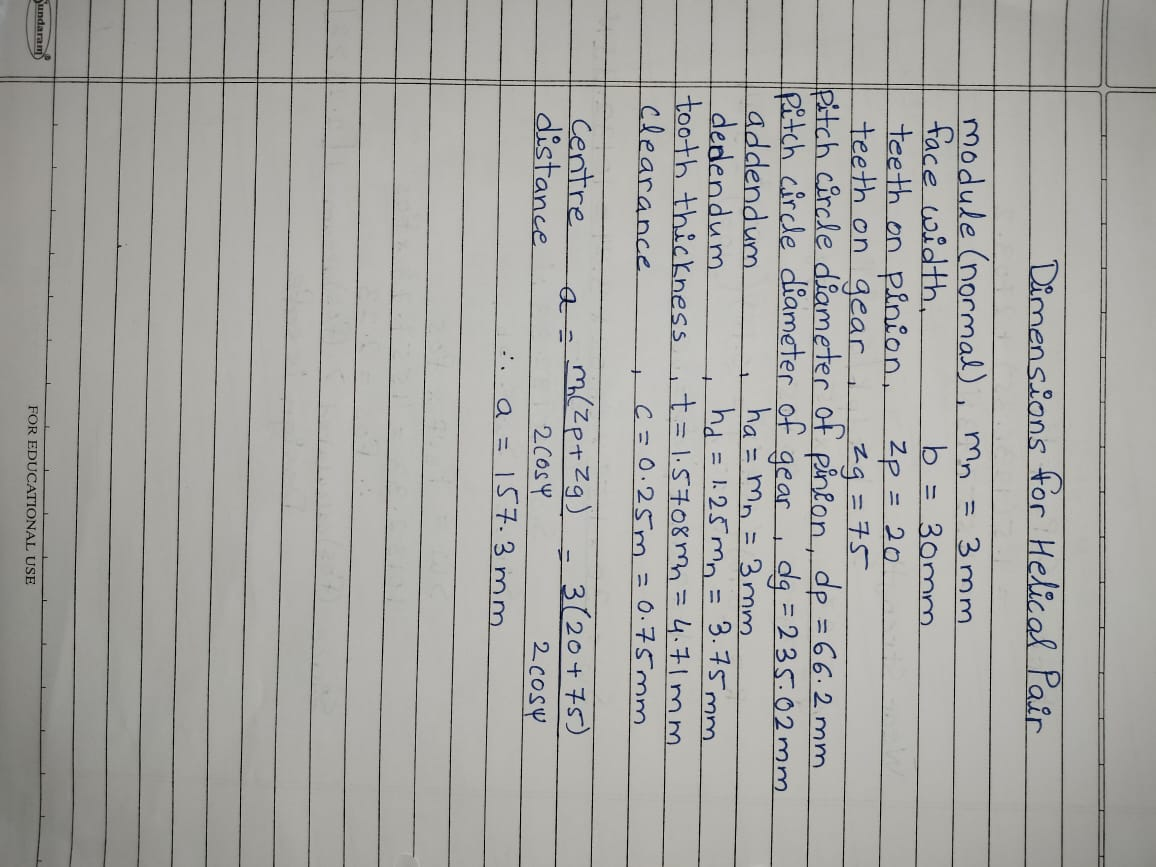 Dimensions for Helical Pair
module (normal), mn = 3mm
face width, b = 30mm
teeth on pinion, zp = 20
teeth on gear, zg = 75
Pitch circle diameter of pinion, dp = 66.2 mm
Pitch circle diameter of gear, dg = 235.02mm
addendum, ha = mn = 3mm
dedendum, hd = 1.25mn = 3.75mm
tooth thickness, t = 1.5708mn = 4.71mm
clearance, c = 0.25m = 0.75mm
Centre distance a = mn(zp+zg) / 2cosψ = 3(20+75) / 2cosψ
∴ a = 157.3mm
FOR EDUCATIONAL USE